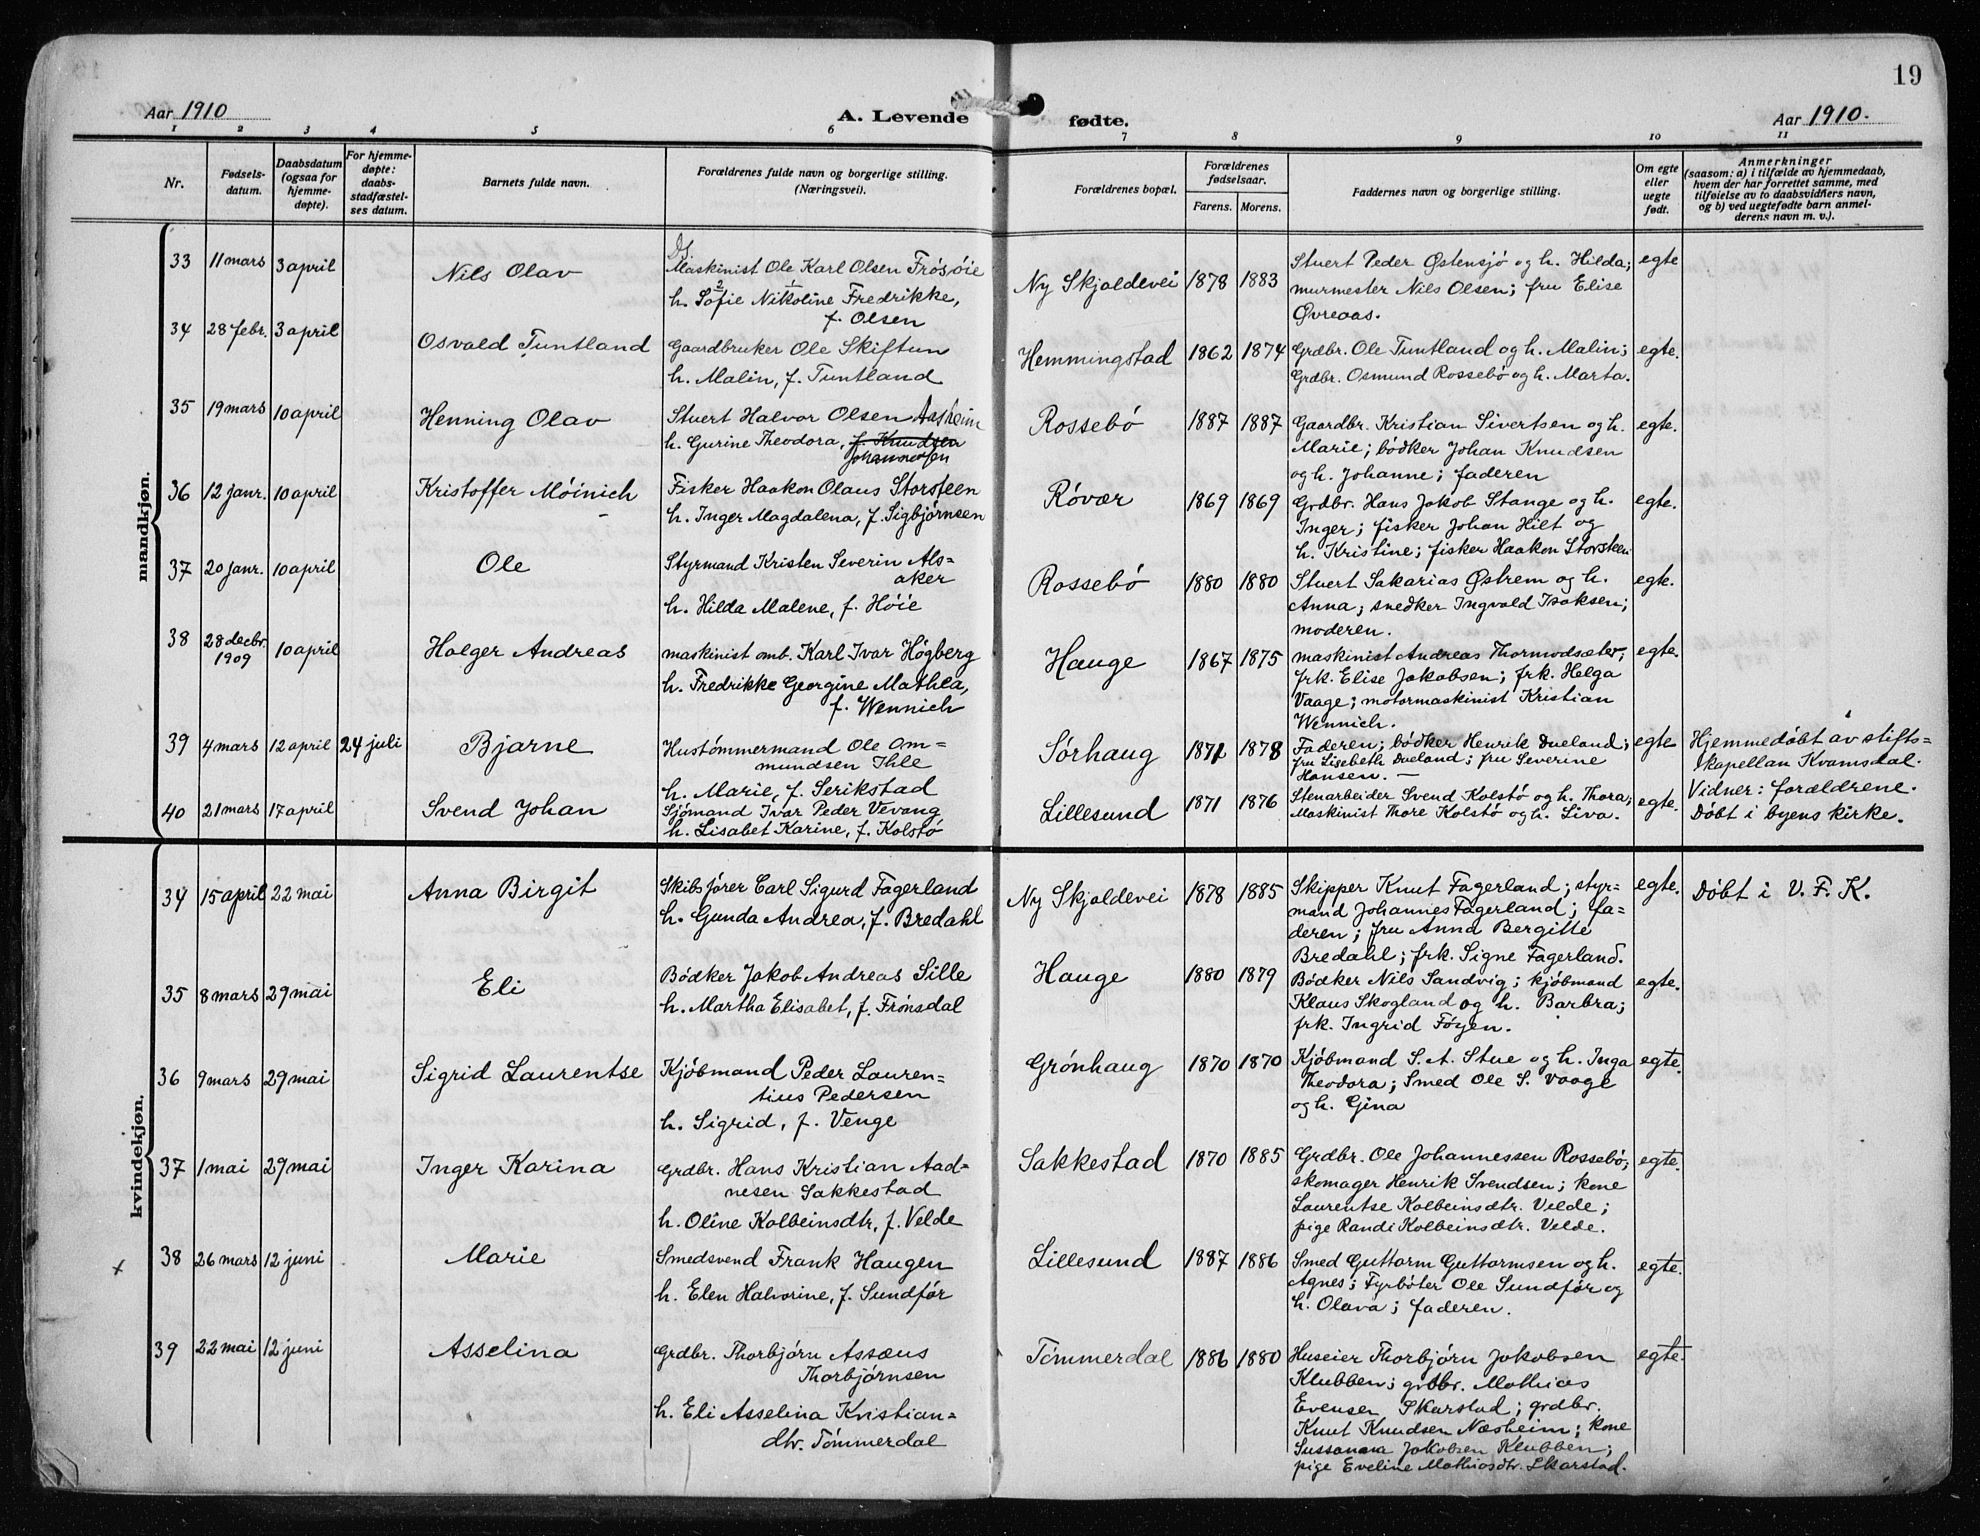 19
Aar 1910
A. Levende fødte.
Aar 1910.
1 2 3 4 5 6 7 8 9 10 11
Nr.
Fødsels-
datum.
Daabsdatum
(ogsaa for
hjemme-
døpte).
For hjemme-
døpte:
daabs-
stadfæstel-
ses datum.
Barnets fulde navn.
Forældrenes fulde navn og borgerlige stilling.
(Næringsvei).
Forældrenes bopæl.
Forældrenes
fødselsaar.
Farens. Morens.
Faddernes navn og borgerlige stilling.
Om egte
eller
uegte
født.
Anmerkninger
(saasom: a) i tilfælde av hjemmedaab,
hvem der har forrettet samme, med
tilføielse av to daabsvidners navn,
og b) ved uegtefødte barn anmel-
derens navn m. v.).
mandkjøn.
33 11 mars 3 april Nils Olav
Maskinist Ole Karl Olsen Frösöie
h. Sofie Nikoline Fredrikke,
f. Olsen
Ny Skjoldevei 1878 1883
Stuert Peder Østensjö og h. Hilda;
murmester Nils Olsen; fru Elise
Øvreaas.
egte
34 28 febr. 3 april Osvald Tuntland
Gaardbruker Ole Skiftun
h. Malin, f. Tuntland
Hemmingstad 1862 1874
Grdbr. Ole Tuntland og h. Malin;
Grdbr. Osmund Rossebö og h. Marta.
egte.
35 19 mars 10 april Henning Olav
Stuert Halvor Olsen Aasheim
h. Gurine Theodora, f. Knudsen
Johannesen
Rossebö 1887 1887
Gaardbr. Kristian Sivertsen og h.
Marie; bödker Johan Knudsen
og h. Johanne; faderen
egte.
36 12 janr. 10 april Kristoffer Möinich
Fisker Haakon Olaus Storsteen
h. Inger Magdalena, f. Sigbjörnsen
Rövær 1869 1869
Grdbr. Hans Jakob Stange og h.
Inger; fisker Johan Hilt og
h. Kristine; fisker Haakon Storsteen
egte.
37 20 janr. 10 april Ole
Styrmand Kristen Severin Als=
aker
h. Hilda Malene, f. Höie
Rossebö 1880 1880
Stuert Sakarias Østrem og h.
Anna; snedker Ingvald Isaksen;
moderen.
egte.
38 28 decbr. 1909 10 april Holger Andreas
maskinist omb. Karl Ivar Högberg
h. Fredrikke Georgine Mathea,
f. Wennich
Hauge 1867 1875
maskinist Andreas Thormodsæter;
frk. Elise Jakobsen; frk. Helga
Vaage; motormaskinist Kristian
Wennich.
egte.
39 4 mars 12 april 24 juli Bjarne
Hustömmermand Ole Om=
mundsen Ihle
h. Marie, f. Serikstad
Sörhaug 1871 1878
Faderen; bödker Henrik Dueland;
fru Lisebeth Dueland; fru Severine
Hansen. —
egte
Hjemmedöbt av stifts=
kapellan Kvamsdal.
Vidner: forældrene.
Döbt i byens kirke.
40 21 mars 17 april Svend Johan
Sjömand Ivar Peder Vevang
h. Lisabet Karine, f. Kolstö
Lillesund 1871 1876
Stenarbeider Svend Kolstö og h. Thora;
Maskinist Thore Kolstö og h. Liva.
egte.
kvindekjøn.
34 15 april 22 mai Anna Birgit
Skibsförer Carl Sigurd Fagerland
h. Gunda Andrea, f. Bredahl
Ny Skjoldevei 1878 1885
Skipper Knut Fagerland; styr=
mand Johannes Fagerland; fa=
deren; fru Anna Bergitte
Bredahl; frk. Signe Fagerland.
egte.
Döbt i V. F. K.
35 8 mars 29 mai Eli
Bödker Jakob Andreas Sille
h. Martha Elisabet, f. Frönsdal
Hauge 1880 1879
Bödker Nils Sandvig; kjöbmand
Klaus Skogland og h. Barbra;
frk. Ingrid Föyen.
egte.
36 9 mars 29 mai Sigrid Laurentse
Kjöbmand Peder Lauren=
tius Pedersen
h. Sigrid, f. Venge
Grönhaug 1870 1870
Kjöbmand S. A. Stue og h. Inga
Theodora; Smed Ole S. Vaage
og h. Gina
egte.
37 1 mai 29 mai Inger Karina
Grdbr. Hans Kristian Aad=
nesen Sakkestad
h. Oline Kolbeinsdtr, f. Velde
Sakkestad 1870 1885
Grdbr. Ole Johannessen Rossebö;
skomager Henrik Svendsen; kone
Laurentse Kolbeinsdtr. Velde;
pige Randi Kolbeinsdtr. Velde.
egte.
x 38 26 mars 12 juni Marie
Smedsvend Frank Haugen
h. Elen Halvorine, f. Sundför
Lillesund 1887 1886
Smed Guttorm Guttormsen og h.
Agnes; Fyrböter Ole Sundför og
h. Olava; faderen.
egte.
39 22 mai 12 juni Asselina
Grdbr. Thorbjörn Assæus
Thorbjörnsen
h. Eli Asselina Kristian=
dtr. Tömmerdal
Tömmerdal 1886 1880
Huseier Thorbjörn Jakobsen
Klubben; grdbr. Mathias
Evensen Skarstad; grdbr.
Knut Knudsen Næsheim; kone
Sussanna Jakobsen Klubben;
pige Eveline Mathiasdtr. Skarstad.
egte.